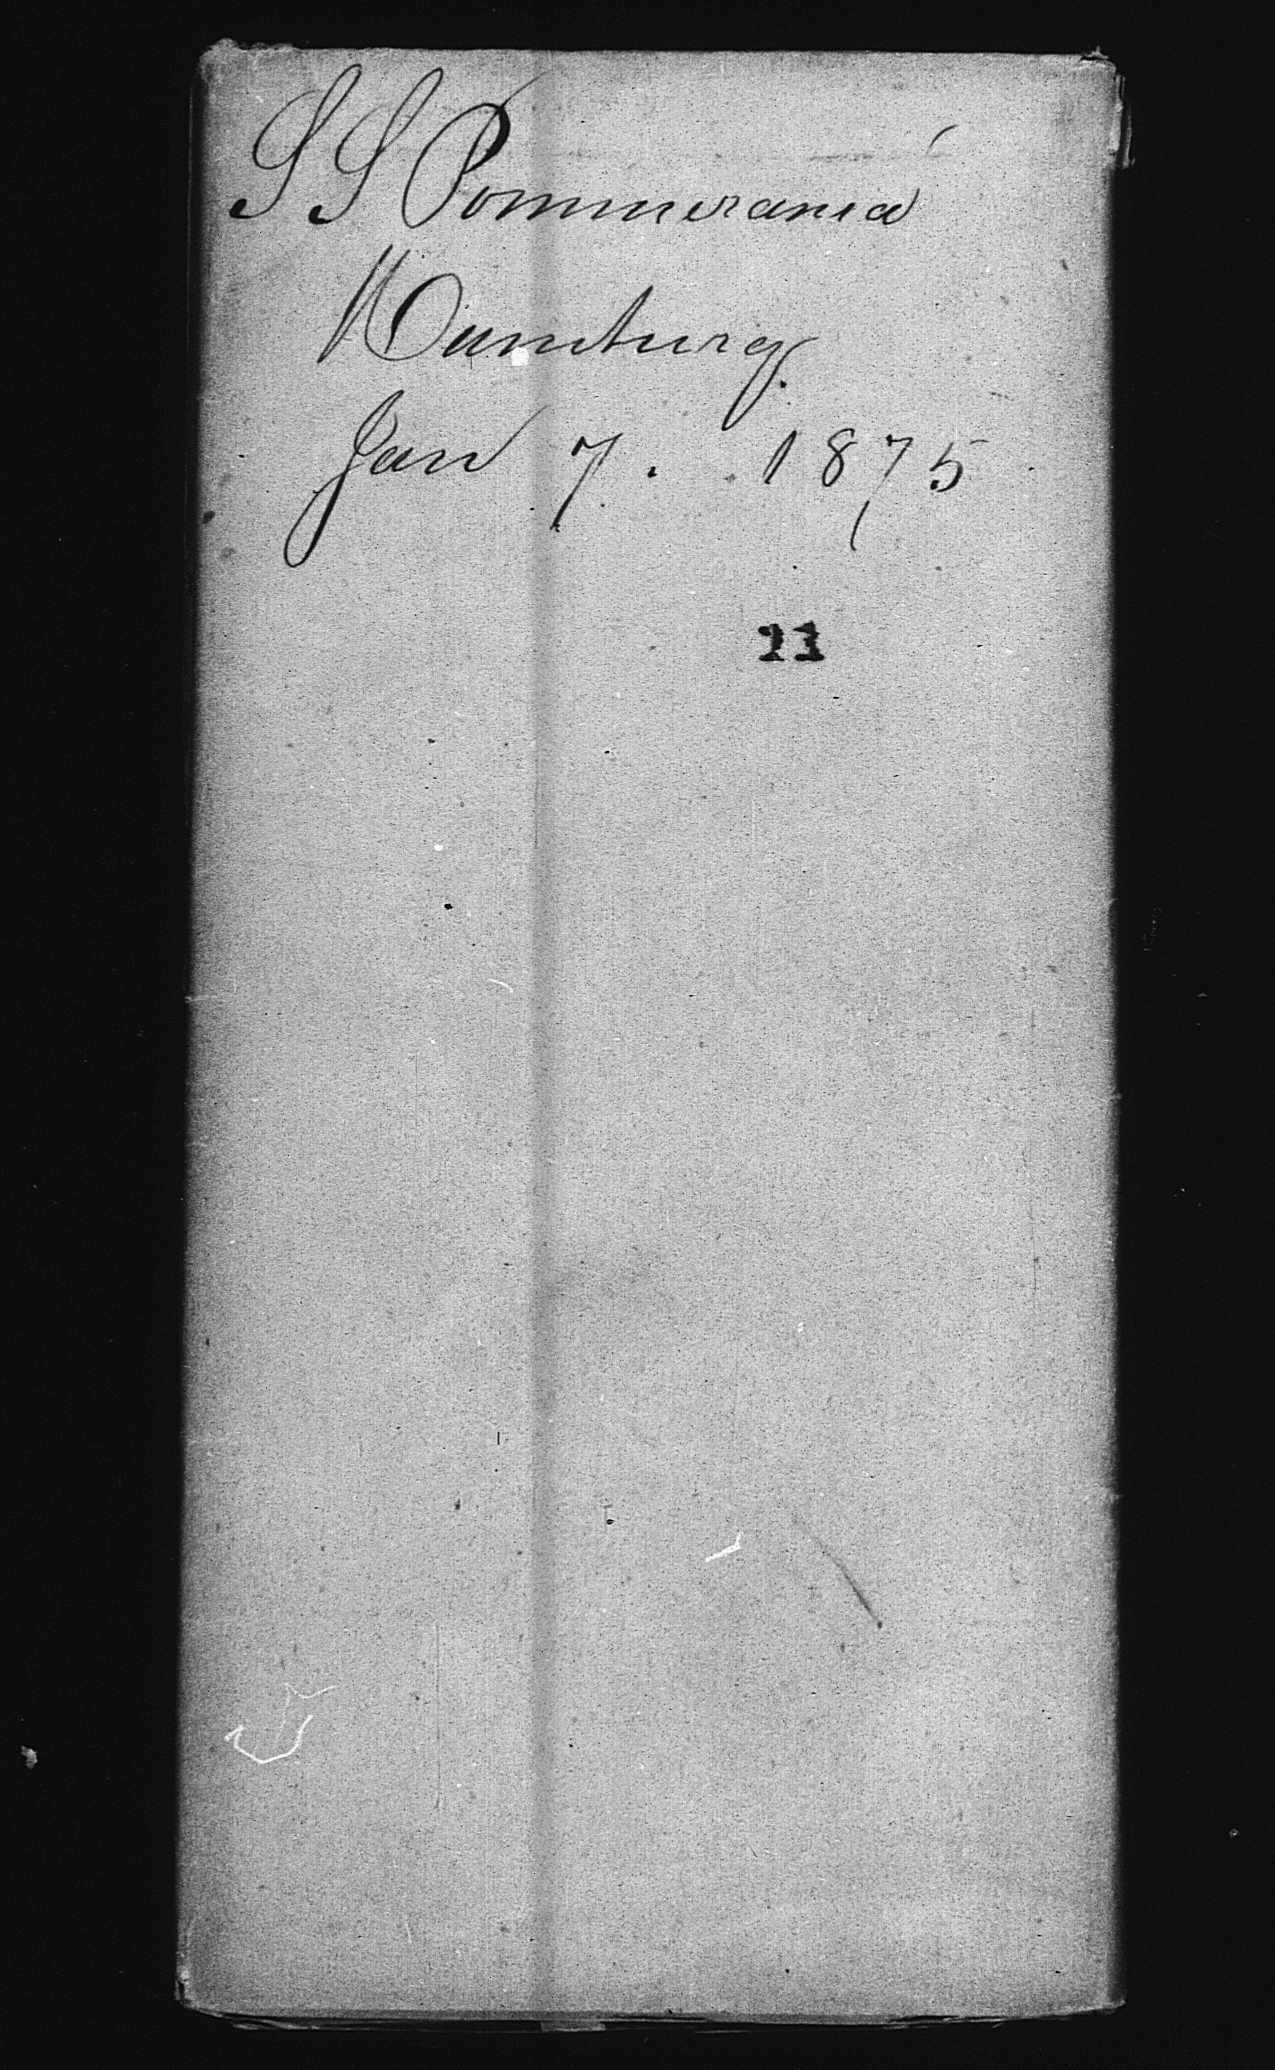 SS Pommerania
Hamburg.
Jan 7. 1875
11